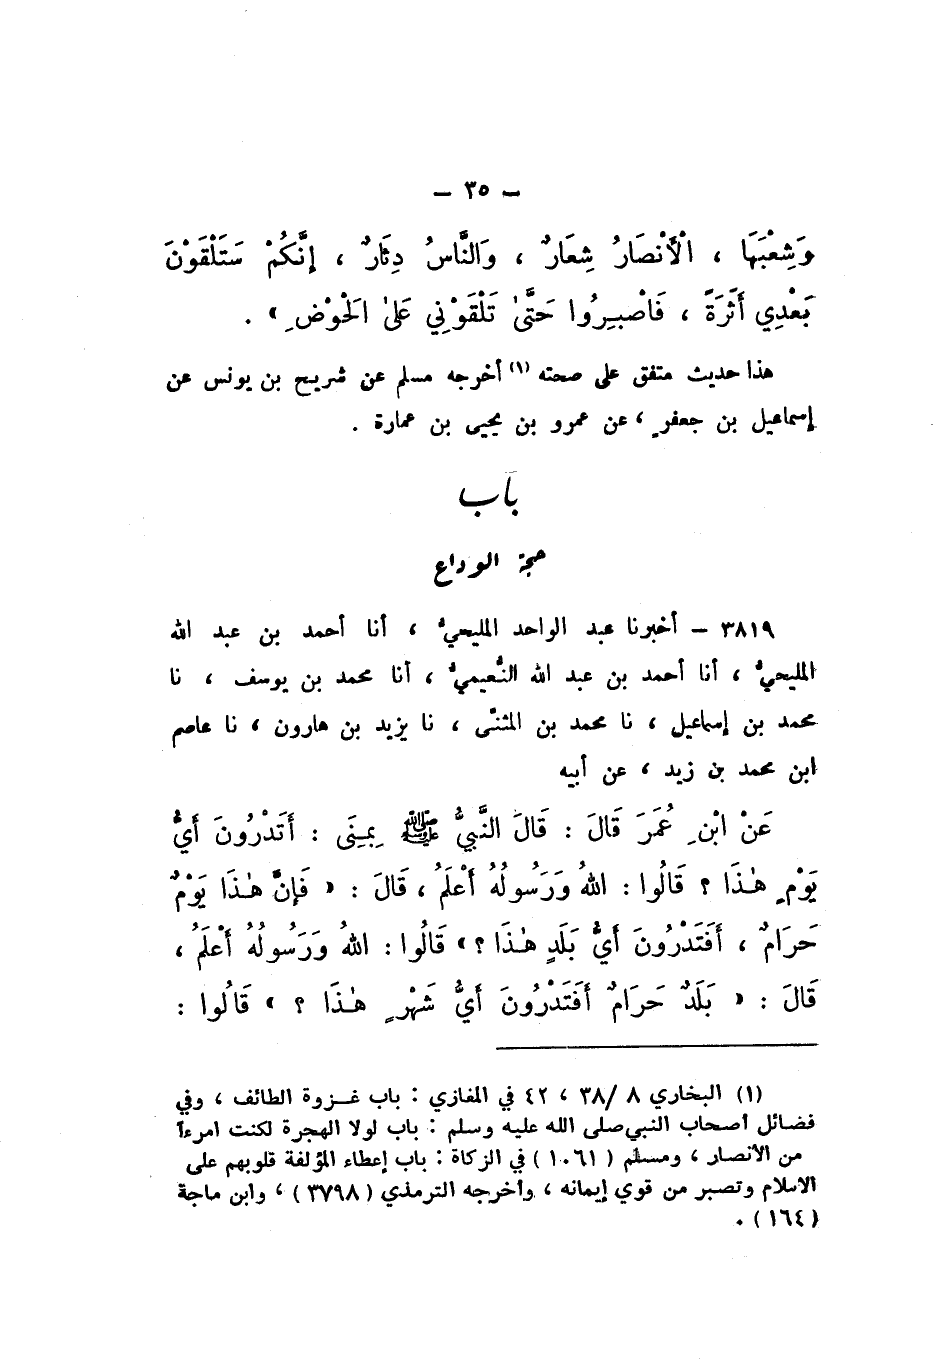 – ٣٥ –
وَشِعْبَهَا ، الْأَنْصَارُ شِعَارٌ ، وَالنَّاسُ دِثَارٌ ، إِنَّكُمْ سَتَلْقَوْنَ
بَعْدِي أَثَرَةً ، فَاصْبِرُوا حَتَّىٰ تَلْقَوْنِي عَلَىٰ الْحَوْضِ » .
هذا حديث متفق على صحته (١) أخرجه مسلم عن شريح بن يونس عن
إسماعيل بن جعفرٍ ، عن عمرو بن يحيى بن عمارة .
باب
حجة الوداع
٣٨١٩ – أخبرنا عبد الواحد المليحيُّ ، أنا أحمد بن عبد الله
المليحيُّ ، أنا أحمد بن عبد الله النُّعيميُّ ، أنا محمد بن يوسف ، نا
محمد بن إسماعيل ، نا محمد بن المثنّى ، نا يزيد بن هارون ، نا عاصم
ابن محمد بن زيد ، عن أبيه
عَنْ ابْنِ عُمَرَ قَالَ : قَالَ النَّبِيُّ ﷺ بِمِنَى : أَتَدْرُونَ أَيُّ
يَوْمٍ هٰذَا ؟ قَالُوا : اللهُ وَرَسُولُهُ أَعْلَمُ ، قَالَ : « فَإِنَّ هٰذَا يَوْمٌ
حَرَامٌ ، أَفَتَدْرُونَ أَيُّ بَلَدٍ هٰذَا ؟ » قَالُوا : اللهُ وَرَسُولُهُ أَعْلَمُ ،
قَالَ : « بَلَدٌ حَرَامٌ أَفَتَدْرُونَ أَيُّ شَهْرٍ هٰذَا ؟ » قَالُوا :
(١) البخاري ٨ /٣٨ ، ٤٢ في المغازي : باب غــزوة الطائف ، وفي
فضائل أصحاب النبي صلى الله عليه وسلم : باب لولا الهجرة لكنت امرءاً
من الأنصار ، ومسلم ( ١٠٦١ ) في الزكاة : باب إعطاء المؤلفة قلوبهم على
الاسلام وتصبر من قوي إيمانه ، وأخرجه الترمذي ( ٣٧٩٨ ) ، وابن ماجة
( ١٦٤ ) .